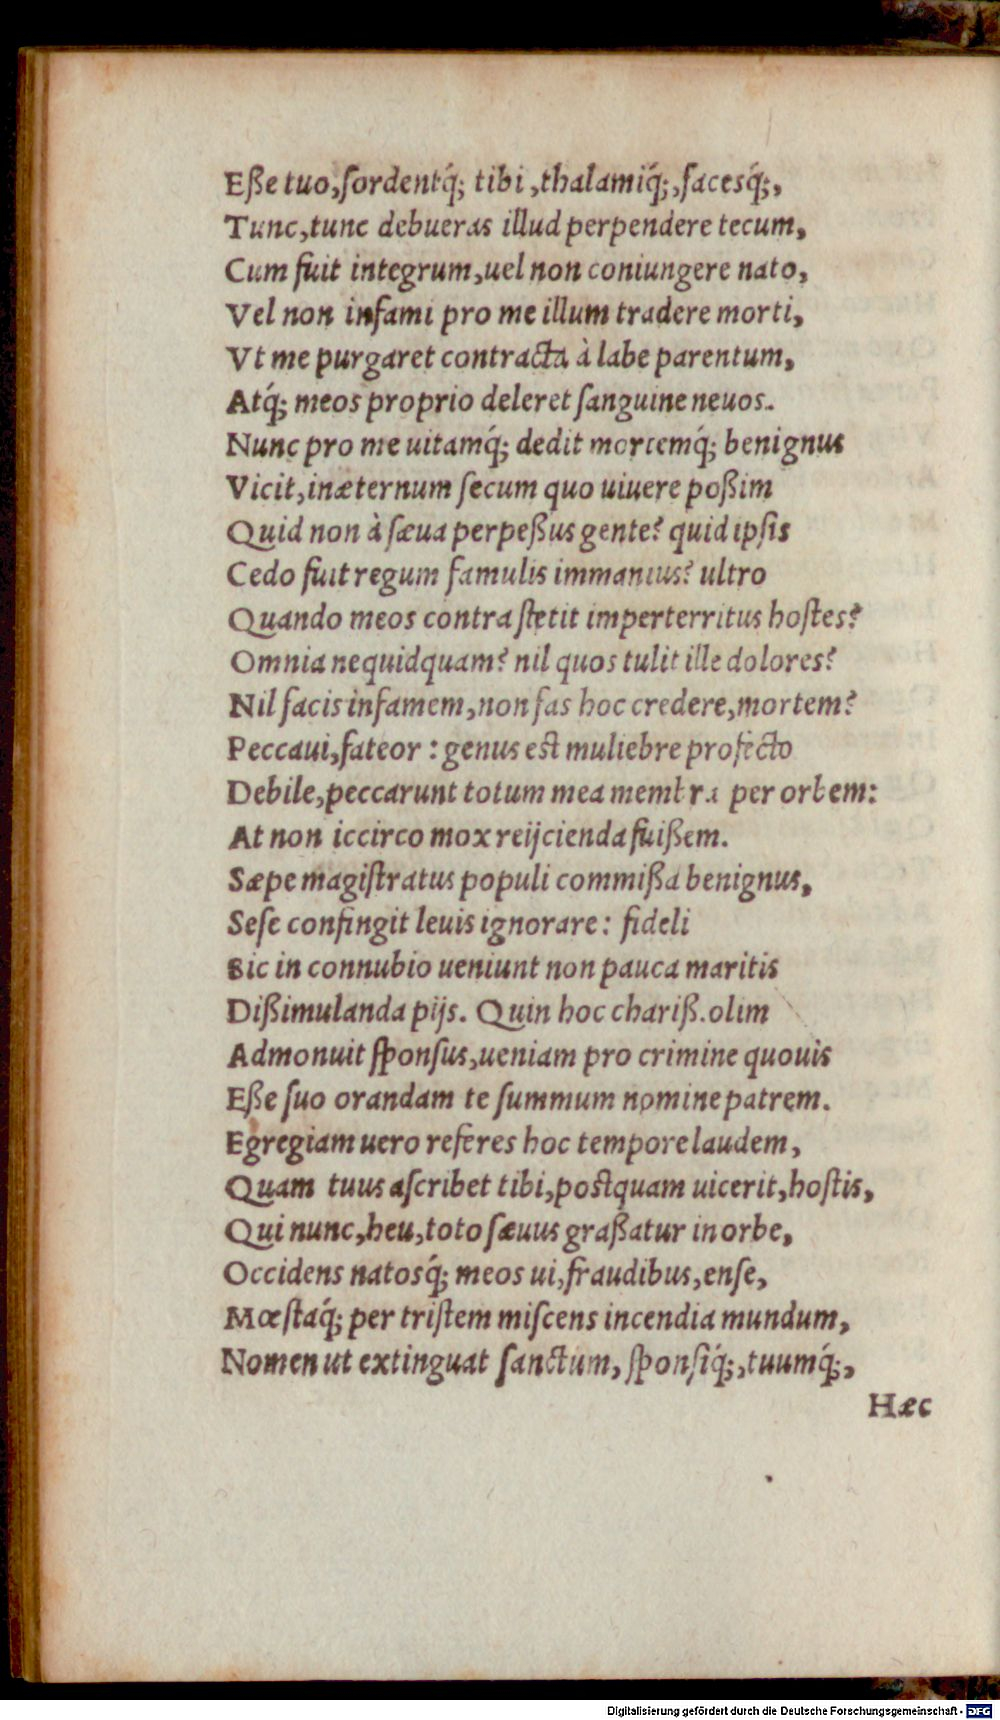 Eße tuo,ſordentq́; tibi,thalamiq́;,facesq́;,
Tunc,tunc debueras illud perpendere tecum,
Cum fuit integrum,uel non coniungere nato,
Vel non infami pro me illum tradere morti,
Vt me purgaret contracta à labe parentum,
Atq́; meos proprio deleret ſanguine neuos.
Nunc pro me uitamq́; dedit mortemq́; benignus
Vicit,inæternum ſecum quo uiuere poßim
Quid non à ſæua perpeßus gente? quid ipſis
Cedo fuit regum famulis immanius? ultro
Quando meos contra ſtetit imperterritus hoſtes?
Omnia nequidquam? nil quos tulit ille dolores?
Nil facis infamem,non fas hoc credere,mortem?
Peccaui,fateor : genus est muliebre profecto
Debile,peccarunt totum mea membra per orbem:
At non iccirco mox reijcienda fuißem.
Sæpe magiſtratus populi commißa benignus,
Seſe confingit leuis ignorare: fideli
Sic in connubio ueniunt non pauca maritis
Dißimulanda pijs. Quin hoc chariß.olim
Admonuit ſponſus,ueniam pro crimine quouis
Eße ſuo orandam te ſummum nomine patrem.
Egregiam uero referes hoc tempore laudem,
Quam tuus aſcribet tibi,postquam uicerit,hoſtis,
Qui nunc,heu,toto ſæuus graßatur in orbe,
Occidens natosq́; meos ui,fraudibus,enſe,
Mœſtaq́; per triſtem miſcens incendia mundum,
Nomen ut extinguat ſanctum, ſponſiq́;,tuumq́;,
Hæc
Digitalisierung gefördert durch die Deutsche Forschungsgemeinschaft - DFG